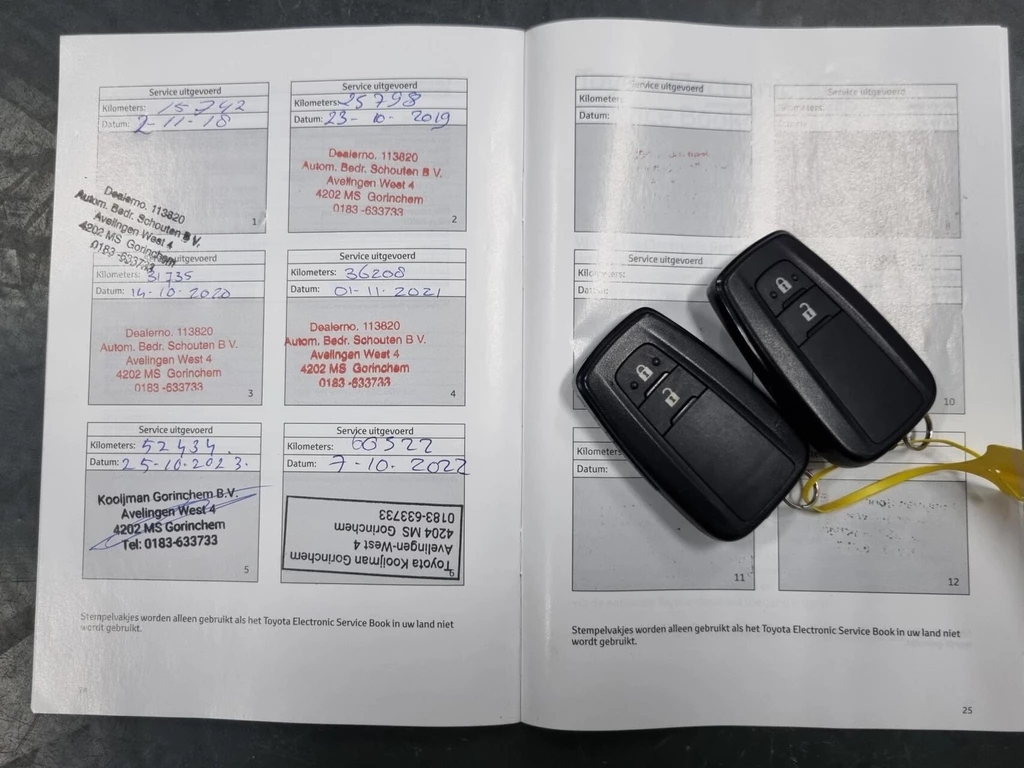 Service uitgevoerd
Kilometers: 15742
Datum: 2-11-18
Dealerno. 113820
Autom. Bedr. Schouten B V.
Avelingen West 4
4202 MS Gorinchem
0183-633733
1
Service uitgevoerd
Kilometers: 25798
Datum: 23-10-2019
Dealerno. 113820
Autom. Bedr. Schouten B V.
Avelingen West 4
4202 MS Gorinchem
0183-633733
2
uitgevoerd
Kilometers: 31735
Datum: 14-10-2020
Dealerno. 113820
Autom. Bedr. Schouten B V.
Avelingen West 4
4202 MS Gorinchem
0183-633733
3
Service uitgevoerd
Kilometers: 36208
Datum: 01-11-2021
Dealerno. 113820
Autom. Bedr. Schouten B V.
Avelingen West 4
4202 MS Gorinchem
0183-633733
4
Service uitgevoerd
Kilometers: 52434.
Datum: 25-10-2023.
Kooijman Gorinchem B.V.
Avelingen West 4
4202 MS Gorinchem
Tel: 0183-633733
5
Service uitgevoerd
Kilometers: 60522
Datum: 7-10-2022
Toyota Kooijman Gorinchem
Avelingen-West 4
4204 MS Gorinchem
0183-633733
Stempelvakjes worden alleen gebruikt als het Toyota Electronic Service Book in uw land niet
wordt gebruikt.
Service uitgevoerd
Kilometers:
Datum:
Service uitgevoerd
Kilometers:
Service uitgevoerd
10
Kilometers
Datum:
11
12
Stempelvakjes worden alleen gebruikt als het Toyota Electronic Service Book in uw land niet
wordt gebruikt.
25